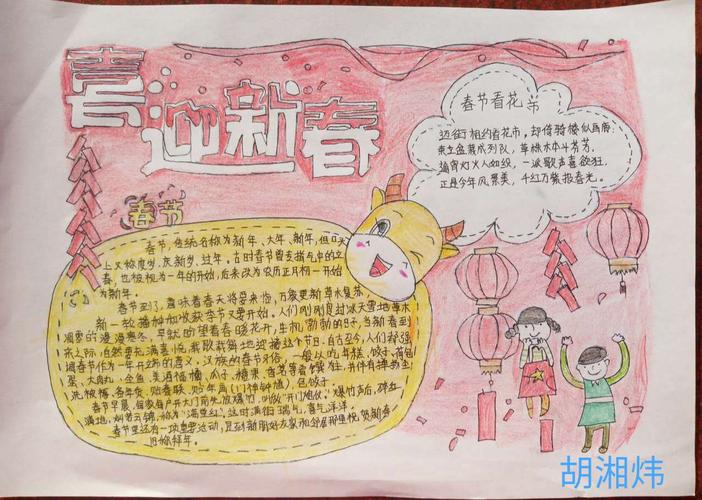 喜迎新春
春节看花市
迈街相约看花市,却倚骑楼似画廊。
束立盆栽成列队,草株木本斗芳芳。
通宵灯火人如织,一派歌声喜欲狂。
正是今年风景美,千红万紫报春光。
春节
春节,传统名称为新年、大年、新年,但口头
上又称度岁、庆新岁、过年。古时春节曾专指节气中的立
春,也被视为一年的开始,后来改为农历正月初一开始
为新年。
春节到了,意味着春天将要来临,万象更新草木复苏,
新一轮播种和收获季节又要开始。人们刚刚度过冰天雪地草木
凋零的漫漫寒冬,早就盼望着春暖花开,生机勃勃的日子,当新春到
来之际,自然要充满喜悦载歌载舞地迎接这个节日。自古至今,人们都强
调春节作为一年开立的意义。汉族的春节习俗,一般以吃年糕、饺子、
蛋、大肉丸、全鱼、美酒福橘、瓜子、糖果、
洗被褥、备年货、贴春联、贴年画、包饺子
春节早晨,爆竹声后,碎红
满地,灿若云锦,称为“满堂红”。这时满街瑞气,喜气洋洋。
春节里还有一项重要活动,是到新朋好友家和邻居那里祝贺新春
旧称拜年。
胡湘炜